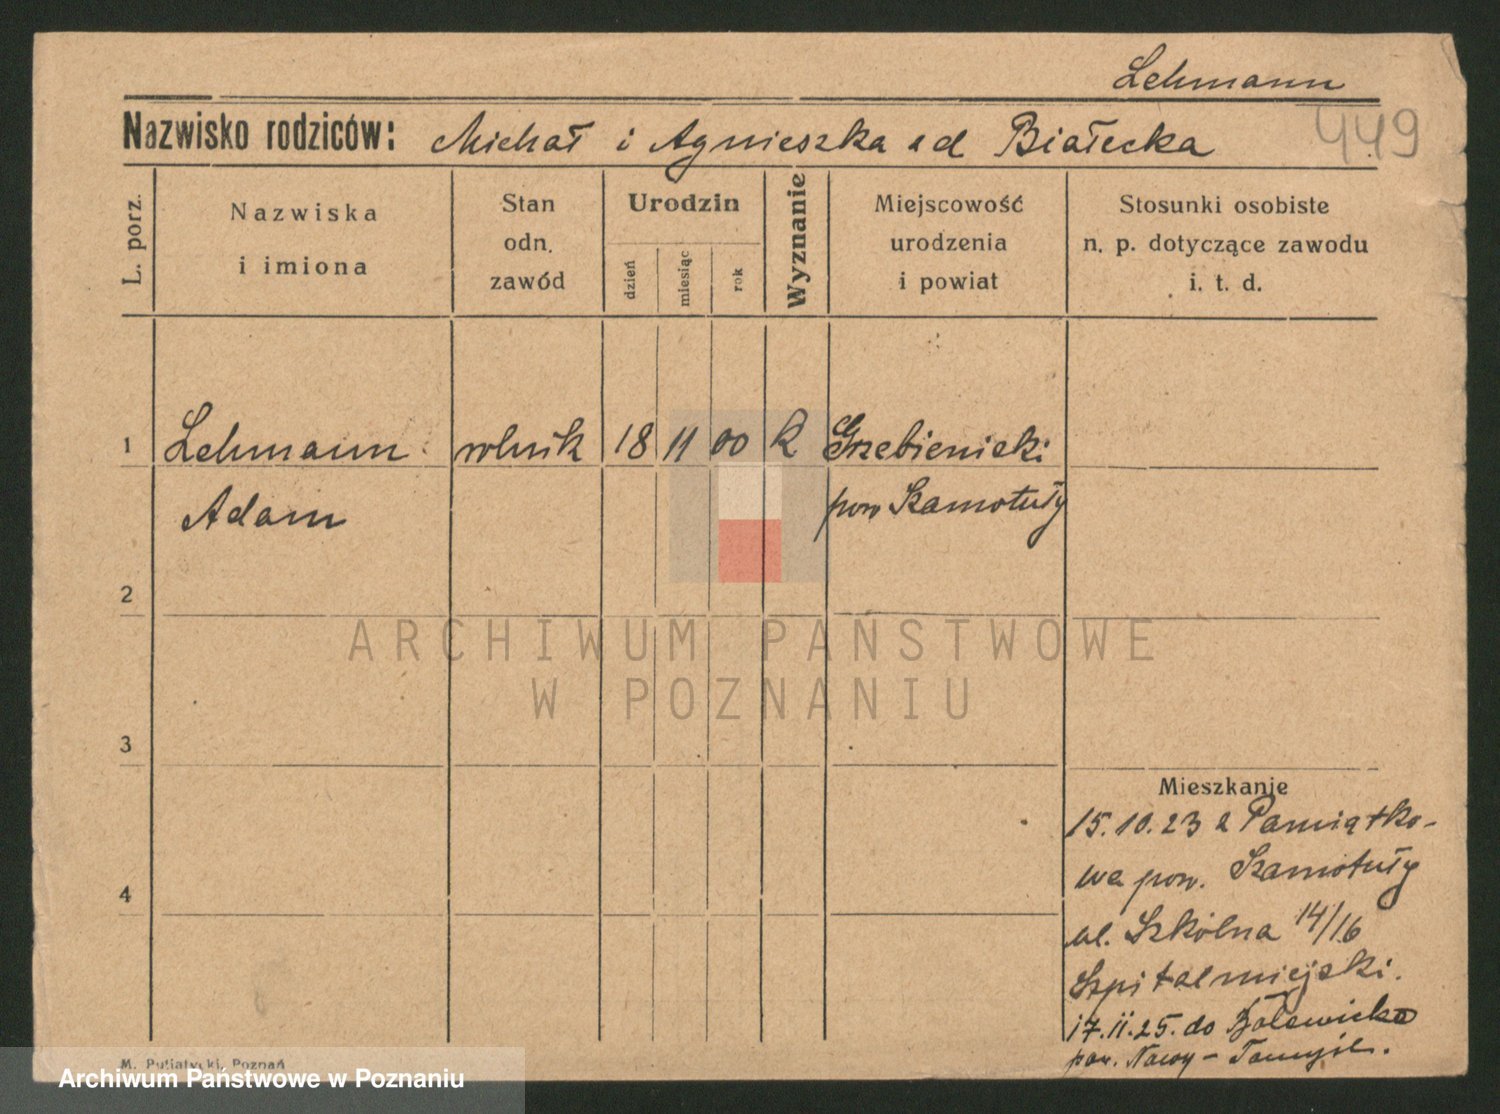 Lehmann
449
Nazwisko rodziców: Michał i Agnieszka z d Białecka
L. porz.
Nazwiska
i imiona
Stan
odn.
zawód
Urodzin
dzień
miesiąc
rok
Wyznanie
Miejscowość
urodzenia
i powiat
Stosunki osobiste
n. p. dotyczące zawodu
i. t. d.
1 Lehmann rolnik 18 11 00 k Grzebienicki
Adam pow Szamotuły
2
ARCHIWUM PAŃSTWOWE
W POZNANIU
3
Mieszkanie
15.10.23 z Pamiątko-
wa pow. Szamotuły
4
ul. Szkolna 14/16
Szpital miejski.
17.11.25. do
pow. Nowy-Tomyśl.
M. Putiatycki, Poznań
Archiwum Państwowe w Poznaniu